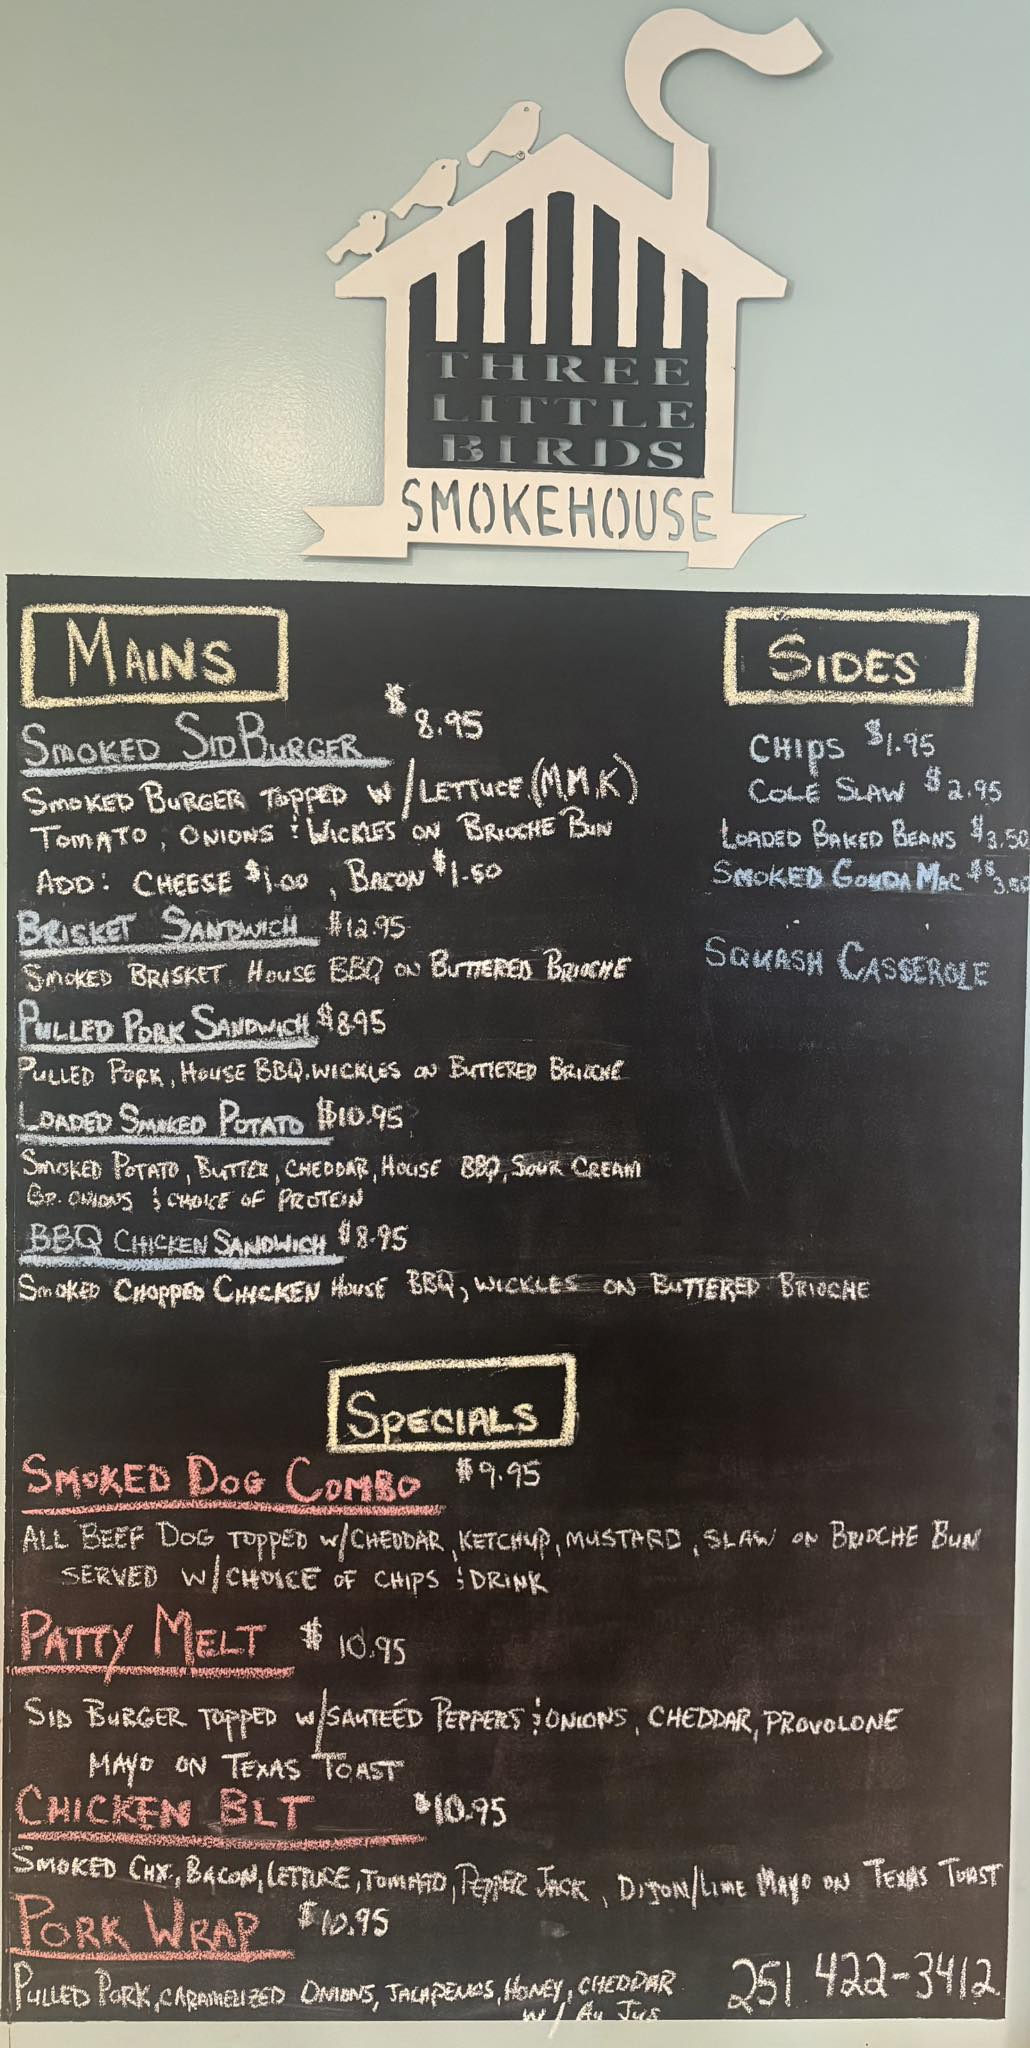 THREE
LITTLE
BIRDS
SMOKEHOUSE
MAINS
SMOKED SIDBURGER $8.95
SMOKED BURGER TOPPED W/LETTUCE, (M,M,K)
TOMATO, ONIONS & WICKLES ON BRIOCHE BUN
ADD: CHEESE $1.00, BACON $1.50
BRISKET SANDWICH $12.95
SMOKED BRISKET, HOUSE BBQ ON BUTTERED BRIOCHE
PULLED PORK SANDWICH $8.95
PULLED PORK, HOUSE BBQ, WICKLES ON BUTTERED BRIOCHE
LOADED SMOKED POTATO $10.95
SMOKED POTATO, BUTTER, CHEDDAR, HOUSE BBQ, SOUR CREAM
GR. ONIONS & CHOICE OF PROTEIN
BBQ CHICKEN SANDWICH $8.95
SMOKED CHOPPED CHICKEN HOUSE BBQ, WICKLES ON BUTTERED BRIOCHE
SIDES
CHIPS $1.95
COLE SLAW $2.95
LOADED BAKED BEANS $3.50
SMOKED GOUDA MAC $3.50
SQUASH CASSEROLE
SPECIALS
SMOKED DOG COMBO $9.95
ALL BEEF DOG TOPPED W/CHEDDAR, KETCHUP, MUSTARD, SLAW ON BRIOCHE BUN
SERVED W/CHOICE OF CHIPS & DRINK
PATTY MELT $10.95
SID BURGER TOPPED W/SAUTEÉD PEPPERS & ONIONS, CHEDDAR, PROVOLONE
MAYO ON TEXAS TOAST
CHICKEN BLT $10.95
SMOKED CHX, BACON, LETTUCE, TOMATO, PEPPER JACK, DIJON/LIME MAYO ON TEXAS TOAST
PORK WRAP $10.95
PULLED PORK, CARAMELIZED ONIONS, JALAPENOS, HONEY, CHEDDAR
W/ AU JUS
251 422-3412